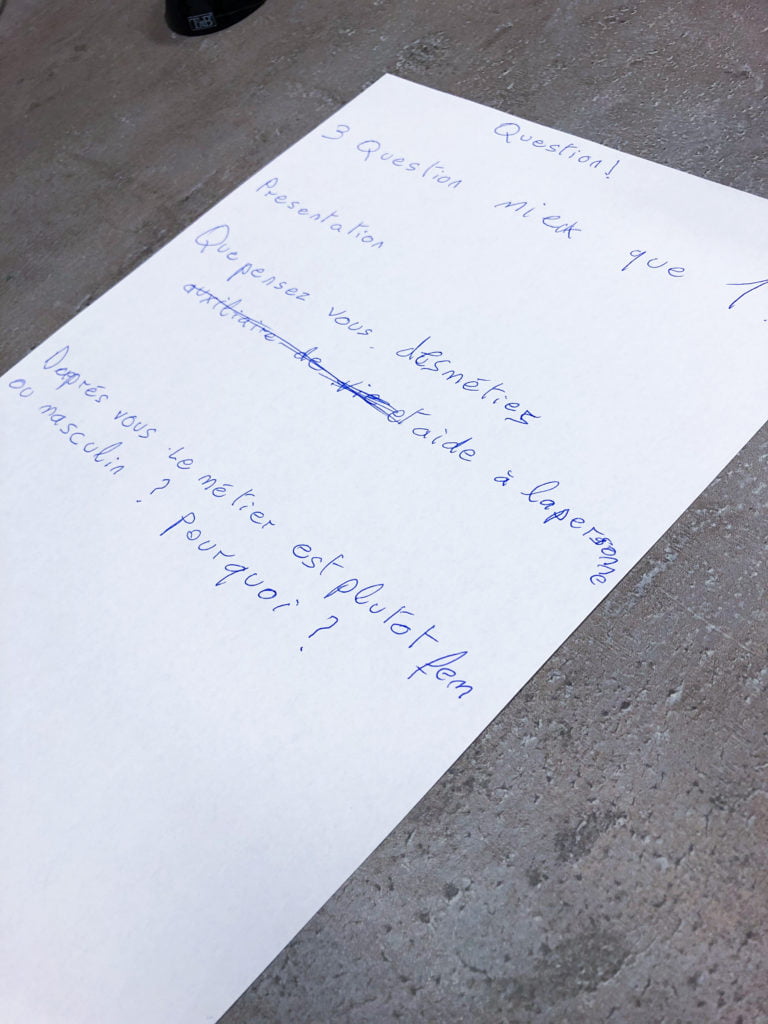 TnB
Question!
3 Question mieux que 1.
Presentation
Que pensez vous. des métiers
auxiliaire de vie et aide à la personne
Daprés vous Le métier est plutot fem
ou masculin ? pourquoi ?